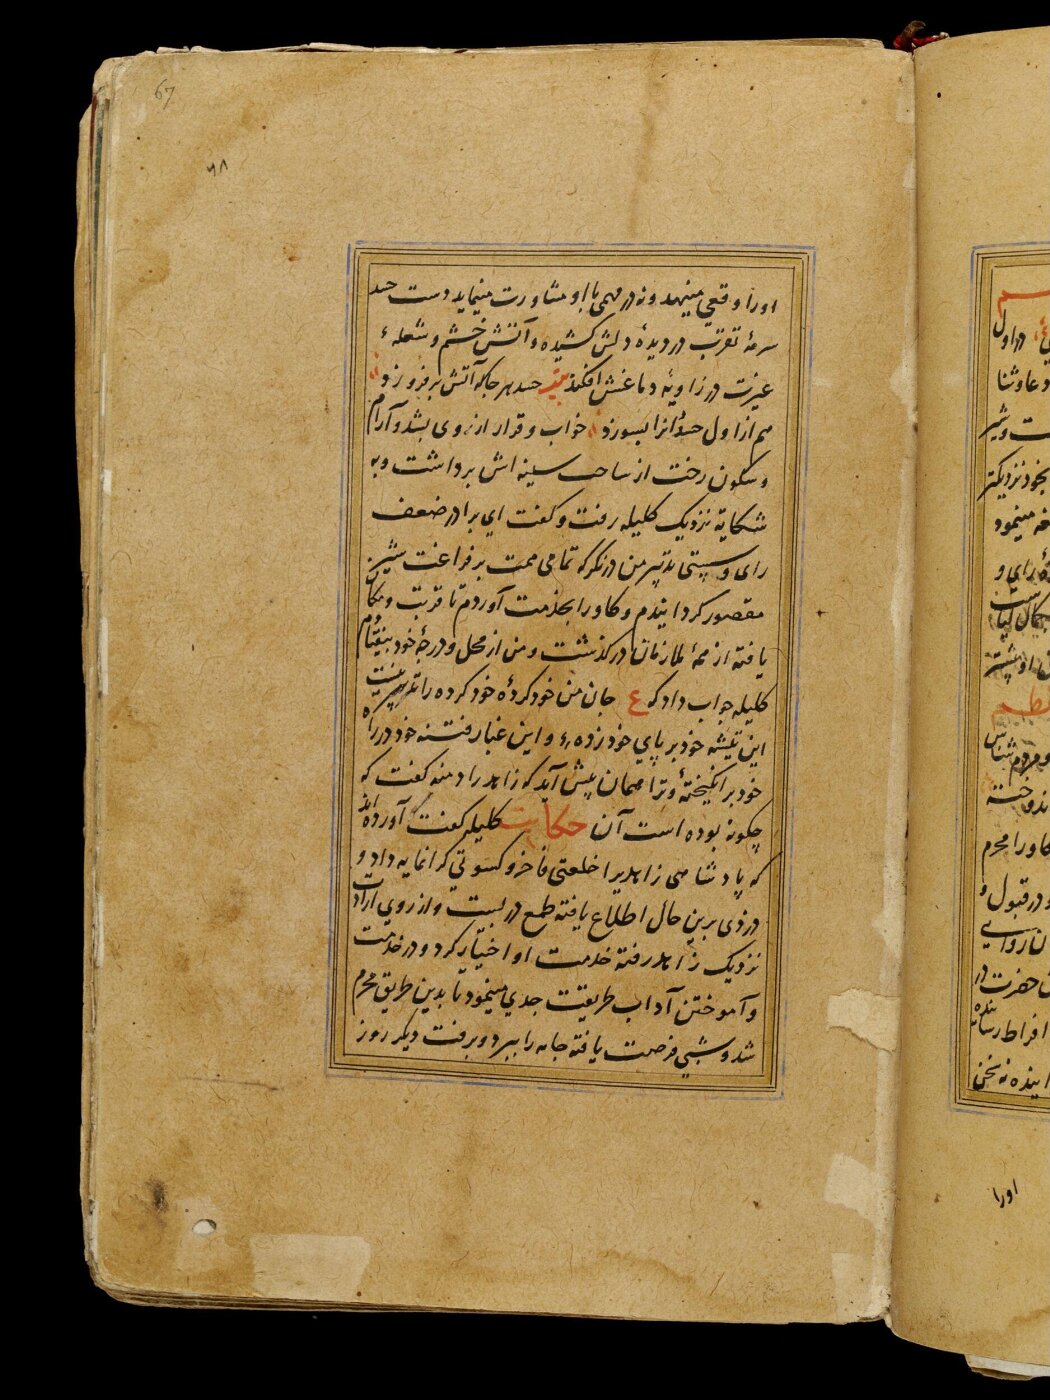 67
۶۸
اورا وقعی مینهد و نه در مهمی با او مشاورت مینماید دست حسد
سرمهٔ تقرب در دیدهٔ دلش کشیده و آتش خشم و شعلهٔ
غیرت در زاویهٔ دماغش افکند بیت حسد هر جا که آتش برفروزد
هم از اول حسود انرا بسوزد خواب و قرار از وی بشد و آرام
و سکون رخت از ساحت سینه اش برداشت و به
شکایة نزدیک کلیله رفت و کفت ای برادر ضعف
رای و سستی تدبیر من درنکر که تمامی همت بر فراغت شیر
مقصور کردانیدم و کاو را بخدمت آوردم تا قربت و مکان
یافته از همهٔ ملازمان درکذشت و من از محل و درجهٔ خود بیفتادم
کلیله جواب داد که ع جان من خود کردهٔ خود کرده را تدبیر نیست
این تیشه خود بر پای خود زدهٔ و این غبار فتنه خود در راه
خود برانکیختهٔ و ترا همان پیش آید که زاهد را دمنه کفت که
چکونه بوده است آن حکایت کلیله کفت آورده اند
که پادشاهی زاهدیرا خلعتی فاخر و کسوتی کرانمایه داد و
دزدی برین حال اطلاع یافته طمع در بست و از روی ارادت
نزدیک زاهد رفته خدمت او اختیار کرد و در خدمت
و آموختن آداب طریقت جدی مینمود تا بدین طریق محرم
شد و شبی فرصت یافته جامه را ببرد و برفت دیکر روز
در اول
دعا و ثنا
بخود نزدیکتر
رای و
و مردم شناس
کاو را محرم
در قبول و
حضرت
افراط
اورا